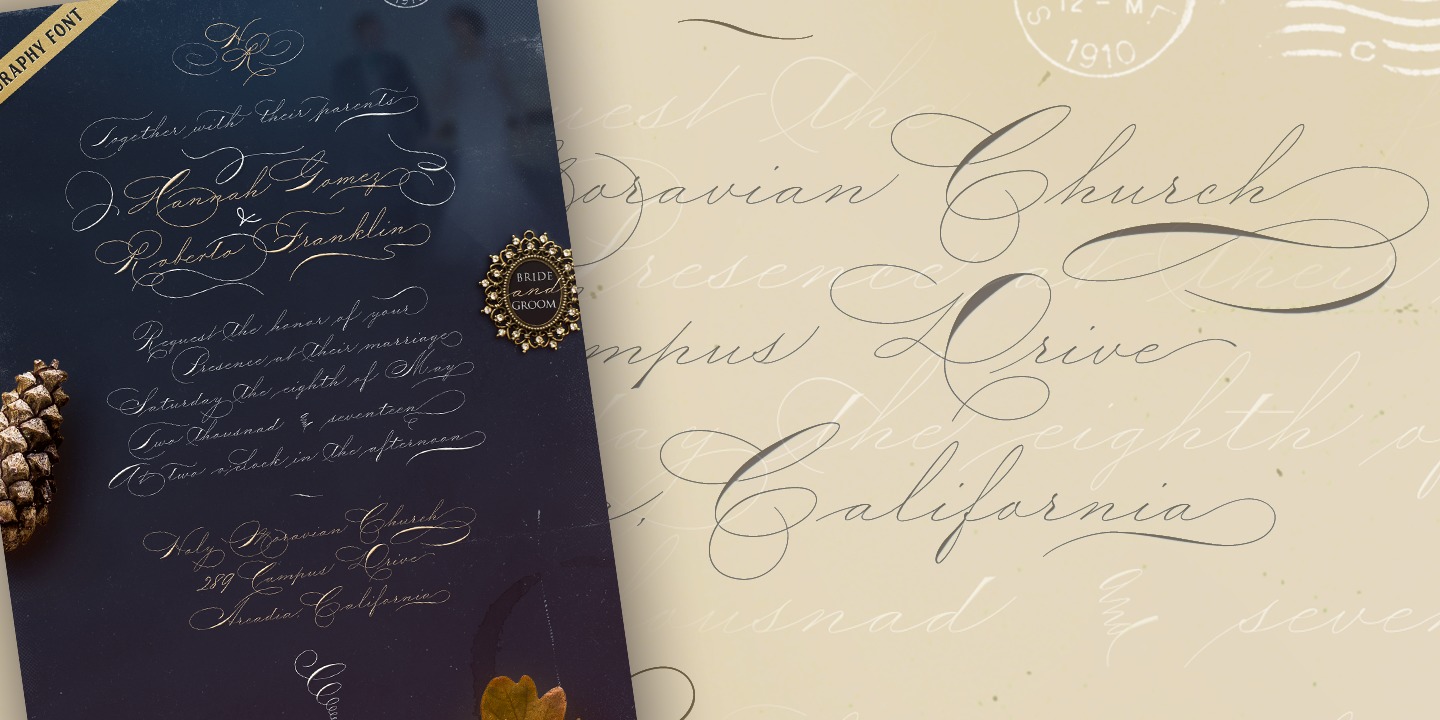 GRAPHY FONT
HR
Together with their parents
Hannah Gomez
&
Roberto Franklin
Request the honor of your
Presence at their marriage
Saturday the eighth of May
Two thousnad & seventeen
At two o'clock in the afternoon
Holy Moravian Church
289 Campus Drive
Arcadia, California
BRIDE
and
GROOM
12 - M
1910
C
uest the
Moravian Church
Presence at their
mpus Drive
ay the eighth o
California
ousnad & seven